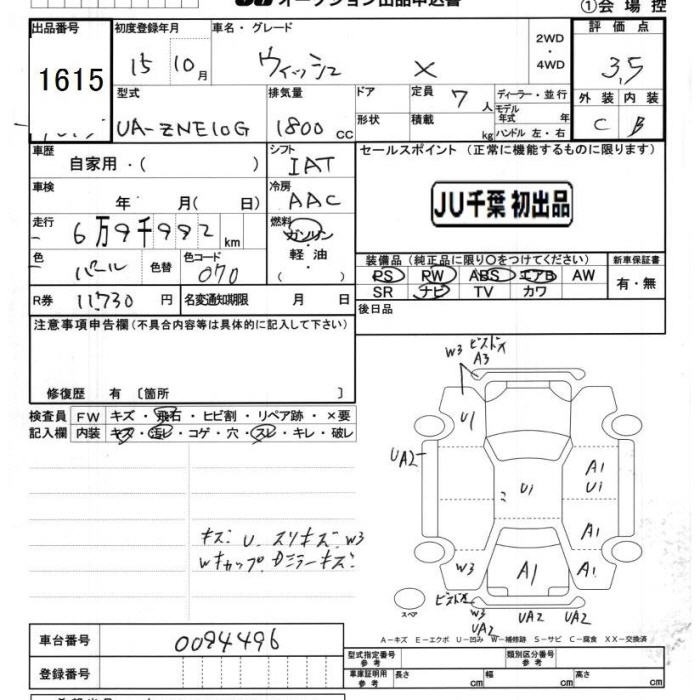 オークション出品申込書
①会場控
出品番号 初度登録年月 車名・グレード 評価点
1615 15 10月 ウィッシュ X 2WD・4WD 3,5
型式 排気量 ドア 定員 7人 ディーラー・並行 外装 内装
UA-ZNE10G 1800cc 形状 積載 kg モデル年式 年 ハンドル 左・右 C B
車歴 自家用・( ) シフト IAT セールスポイント (正常に機能するものに限ります)
車検 年 月( 日) 冷房 AAC
JU千葉 初出品
走行 6万9千992km 燃料 ガソリン・軽油・( )
色 パール 色替 色コード 070
装備品 (純正品に限り〇をつけてください) 新車保証書
PS RW ABS エアB AW 有・無
SR ナビ TV カワ
R券 11,730円 名変通知期限 月 日
後日品
注意事項申告欄(不具合内容等は具体的に記入して下さい)
修復歴 有 [箇所 ]
検査員 FW キズ・飛石・ヒビ割・リペア跡・×要
記入欄 内装 キズ・汚レ・コゲ・穴・スレ・キレ・破レ
W3
A3
U1
UA2
A1
U1
U1
A1
W3
A1
A1
キズ U スリキズ W3
スペア
W3
UA2
UA2
UA2
A-キズ E-エクボ U-凹み W-補修跡 S-サビ C-腐食 XX-交換済
車台番号 0094496
型式指定番号 参考 類別区分番号 参考
登録番号
車庫証明用 参考 長さ cm 幅 cm 高さ cm